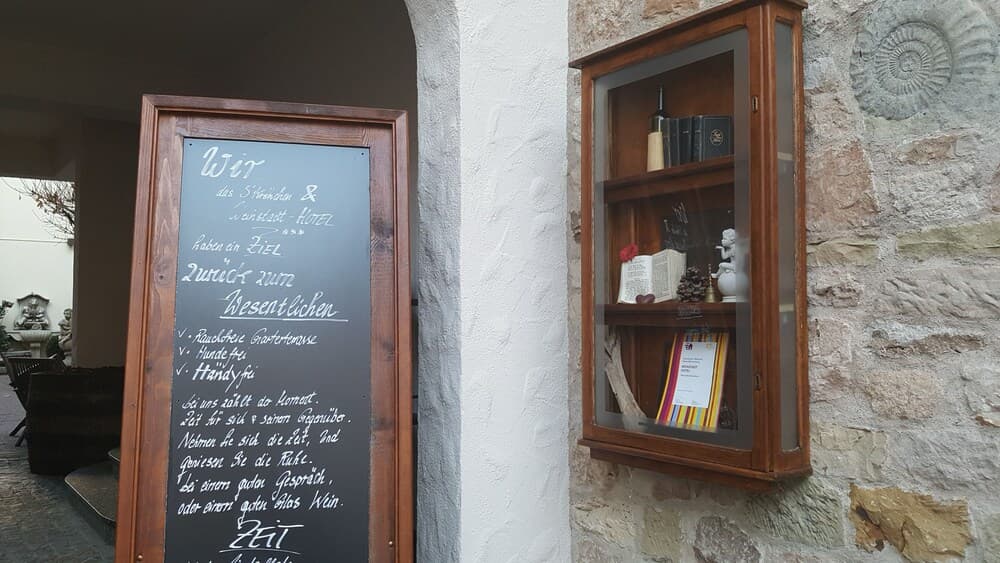 Wir
das S'Kränchen &
Weinstadt-HOTEL
haben ein ZIEL
Zurück zum
Wesentlichen
✓ • Rauchfreie Gartenterrasse
✓ • Hundefrei
✓ • Händyfrei
bei uns zählt der Moment.
Zeit für sich & seinem Gegenüber.
Nehmen Sie sich die Zeit, und
geniesen Sie die Ruhe.
bei einem guten Gespräch,
oder einem guten Glas Wein.
ZEIT